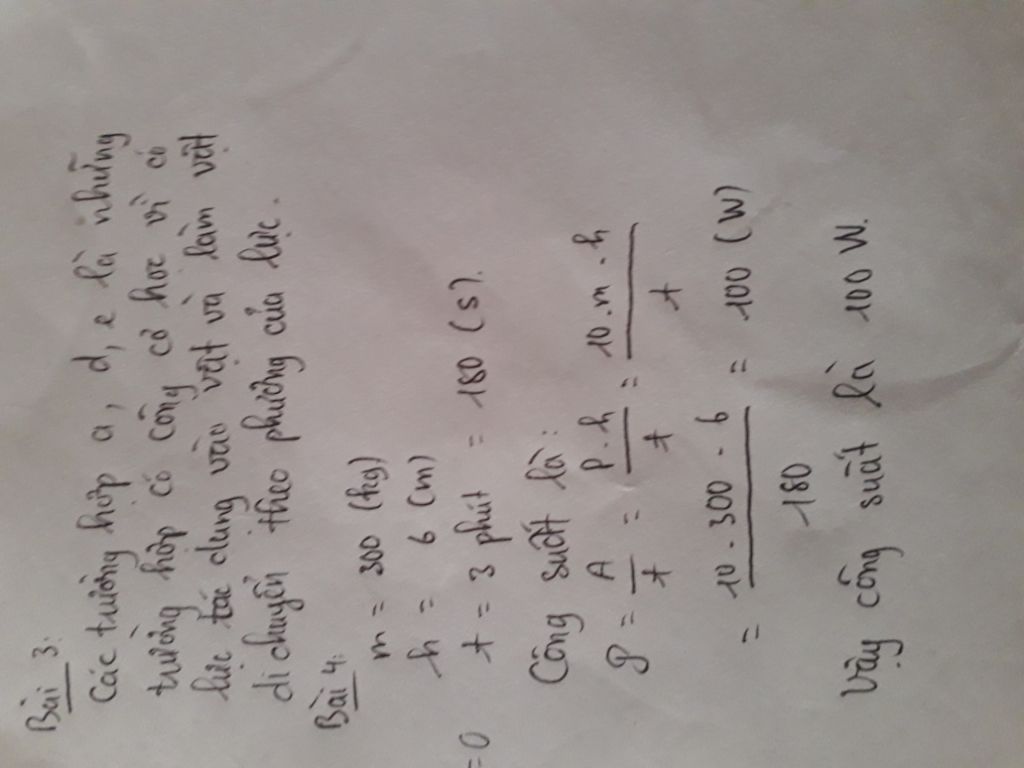 Bài 3:
Các trường hợp a, d, e là những
trường hợp có công cơ học vì có
lực tác dụng vào vật và làm vật
di chuyển theo phương của lực.
Bài 4:
m = 300 (kg)
h = 6 (m)
=0
t = 3 phút = 180 (s).
Công suất là:
P = A/t = P.h/t = 10.m.h/t
= 10.300.6/180 = 100 (W)
Vậy công suất là 100 W.